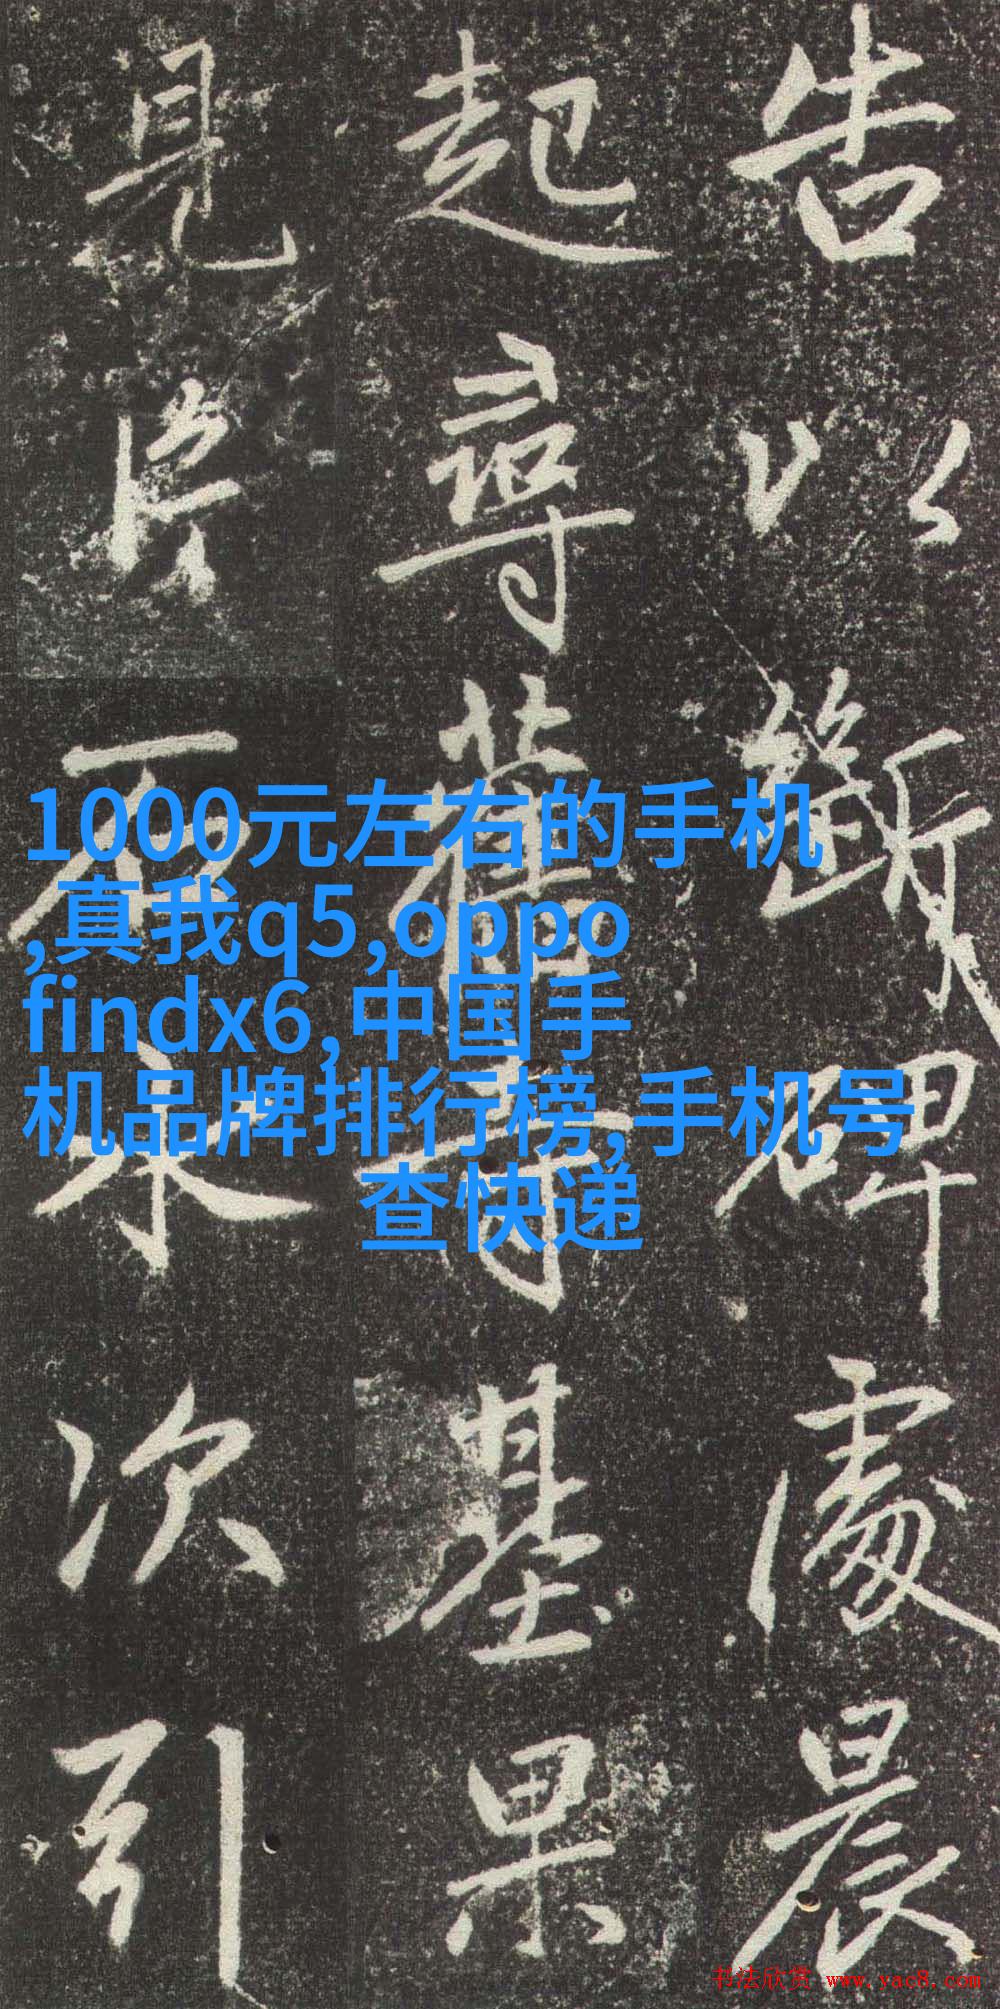 告以斷碑處晨
起尋舊寺基果
見片石永次引
1000元左右的手机
,真我q5,oppo
findx6,中国手
机品牌排行榜,手机号
查快递
书法欣赏 www.yac8.com